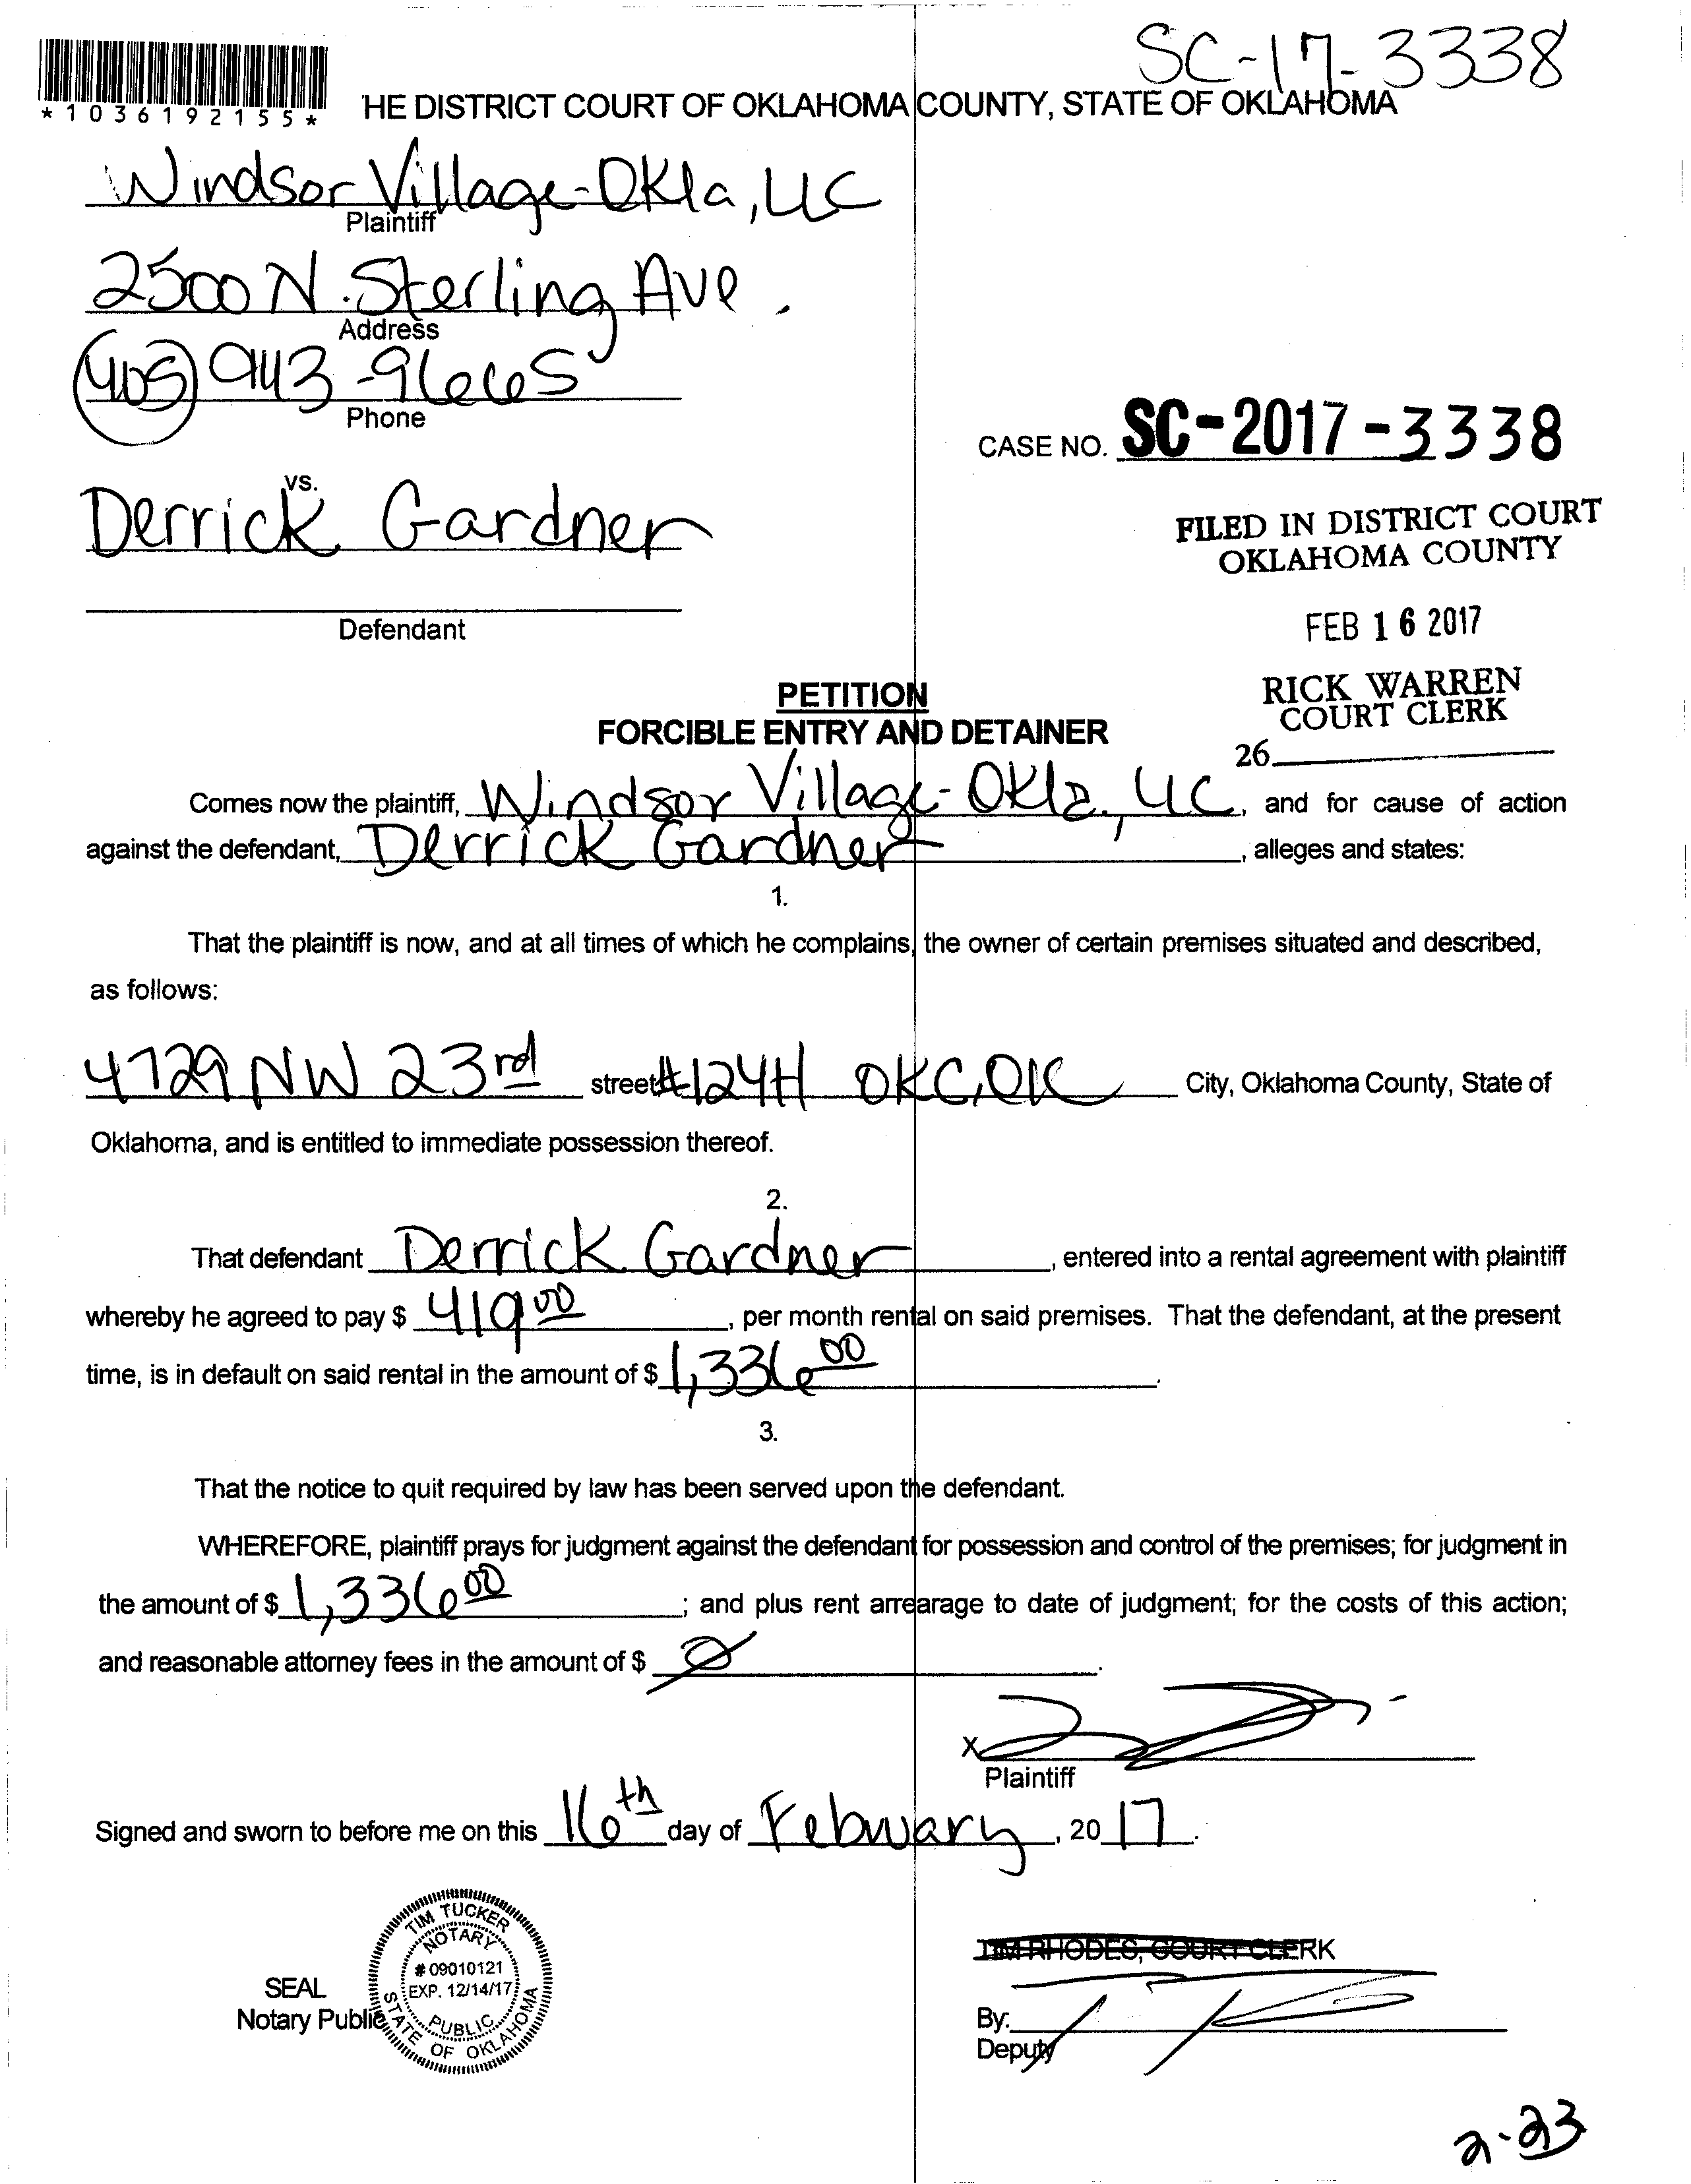 SC-17-3338
*1036192155*
HE DISTRICT COURT OF OKLAHOMA COUNTY, STATE OF OKLAHOMA
Windsor Village-Okla, LLC
Plaintiff
2500 N. Sterling Ave.
Address
(405) 943-9665
Phone
CASE NO. SC-2017-3338
vs.
Derrick Gardner
FILED IN DISTRICT COURT
OKLAHOMA COUNTY
Defendant
FEB 16 2017
RICK WARREN
COURT CLERK
26
PETITION
FORCIBLE ENTRY AND DETAINER
Comes now the plaintiff, Windsor Village-Okla, LLC, and for cause of action
against the defendant, Derrick Gardner, alleges and states:
1.
That the plaintiff is now, and at all times of which he complains, the owner of certain premises situated and described,
as follows:
4729 NW 23rd street #124H OKC, OK City, Oklahoma County, State of
Oklahoma, and is entitled to immediate possession thereof.
2.
That defendant Derrick Gardner, entered into a rental agreement with plaintiff
whereby he agreed to pay $ 419 00, per month rental on said premises. That the defendant, at the present
time, is in default on said rental in the amount of $ 1,336 00.
3.
That the notice to quit required by law has been served upon the defendant.
WHEREFORE, plaintiff prays for judgment against the defendant for possession and control of the premises; for judgment in
the amount of $ 1,336 00; and plus rent arrearage to date of judgment; for the costs of this action;
and reasonable attorney fees in the amount of $ 0.
X
Plaintiff
Signed and sworn to before me on this 16th day of February, 20 17.
TIM TUCKER
NOTARY
# 09010121
EXP. 12/14/17
PUBLIC
STATE OF OKLAHOMA
SEAL
Notary Public
TIM RHODES, COURT CLERK
By:
Deputy
2-23